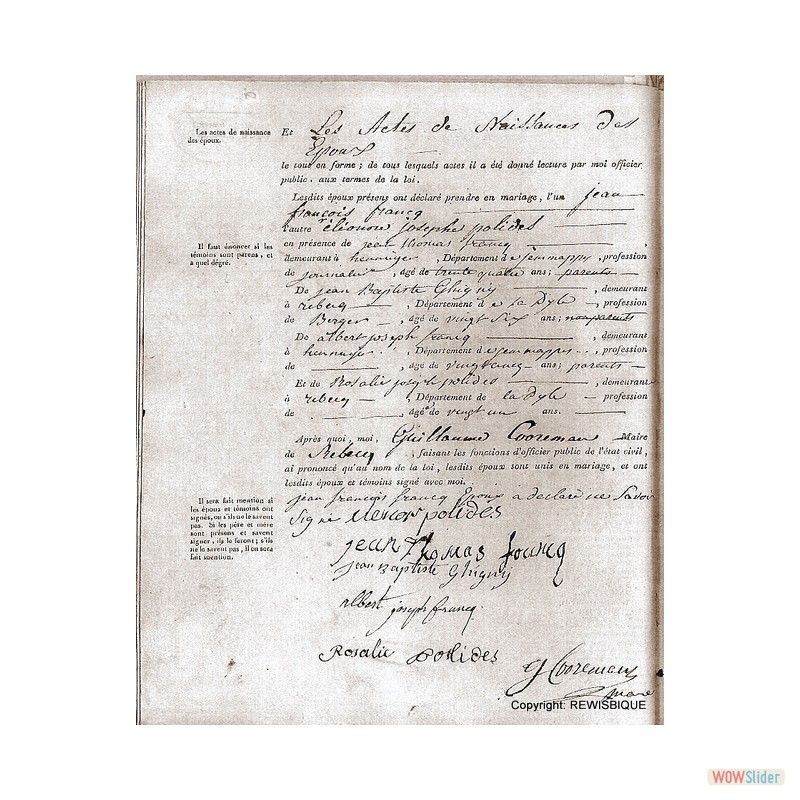 Les actes de naissance
des époux.
Et Les Actes de Naissances des
Epoux
le tout en forme ; de tous lesquels actes il a été donné lecture par moi officier
public, aux termes de la loi.
Lesdits époux présens ont déclaré prendre en mariage, l'un jean
françois francq
l'autre éléonore josephe polides
Il faut énoncer si les
témoins sont parens, et
à quel dégré.
en présence de jean thomas francq ,
demeurant à hennuyer , Département de jemmappes , profession
de journalier , âgé de trente quatre ans; parents
De jean Baptiste Ghigny , demeurant
à rebecq , Département de la Dyle profession
de Berger , âgé de vingt six ans; non parents
De albert joseph francq , demeurant
à hennuyer , Département de jemmappes , profession
de , âgé de vingt cinq ans; parents
Et de Rosalie joseph polides , demeurant
à rebecq , Département de la Dyle profession
de , âgée de vingt un ans.
Après quoi, moi, Guillaume Cooreman Maire
de Rebecq , faisant les fonctions d'officier public de l'état civil,
ai prononcé qu'au nom de la loi, lesdits époux sont unis en mariage, et ont
lesdits époux et témoins signé avec moi.
Il sera fait mention si
les époux et témoins ont
signés, ou s'ils ne le savent
pas. Si les père et mère
sont présens et savent
signer, ils le feront ; s'ils
ne le savent pas, il en sera
fait mention.
jean françois francq Epoux a déclaré ne savoir
signé Elenor polides
jean Thomas francq
jean Baptiste Ghigny
albert joseph francq.
Rosalie polides
G Cooremans
maire
Copyright: REWISBIQUE
WOWSlider